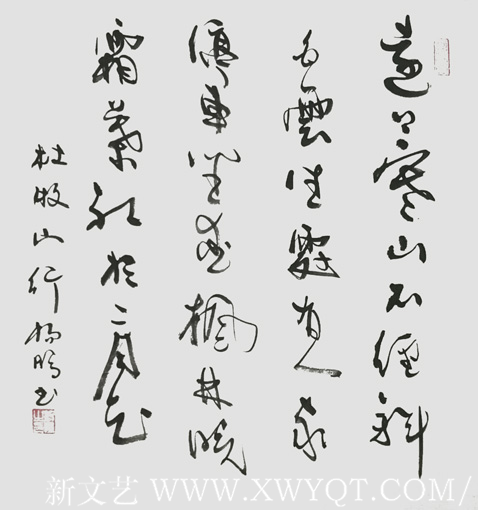 遠上寒山石徑斜
白雲生處有人家
停車坐愛楓林晚
霜葉紅於二月花
杜牧山行 書
新文艺 WWW.XWYQT.COM/